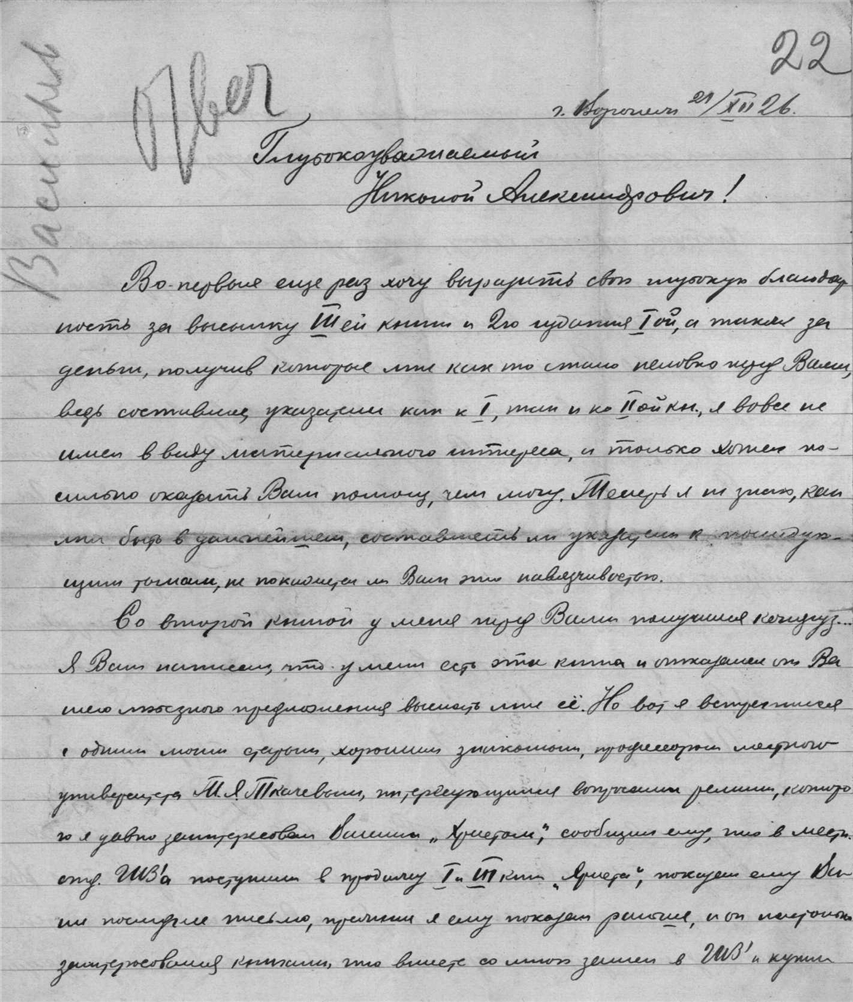 22
Васильев
Отвеч
г. Воронеж 21/XII 26.
Глубокоуважаемый
Николай Александрович!
Во-первых еще раз хочу выразить свою глубокую благодар
ность за высылку IIIей книги и 2го издания Iой, а также за
деньги, получив которые мне как то стало неловко перед Вами,
ведь составляя указатели как к I, так и ко IIой кн., я вовсе не
имел в виду материального интереса, а только хотел по-
сильно оказать Вам помощь, чем могу. Теперь я не знаю, как
мне быть в дальнейшем, составлять ли указатели к последую-
щим томам, не покажется ли Вам это навязчивостью.
Со второй книгой у меня перед Вами получился конфуз...
Я Вам написал, что у меня есть эта книга и отказался от Ва
шего любезного предложения выслать мне её. Но вот я встретился
с одним моим старым, хорошим знакомым, профессором местного
университета М.Я. Ткачевым, интересующимся вопросами религии, которо
го я давно заинтересовал Вашим „Христом“, сообщил ему, что в местн.
отд. ГИЗ'а поступили в продажу I и III книги „Христа“, показал ему Ва
ше последнее письмо, прежние я ему показал раньше, и он настолько
заинтересовался книгами, что вместе со мною зашел в ГИЗ и купил